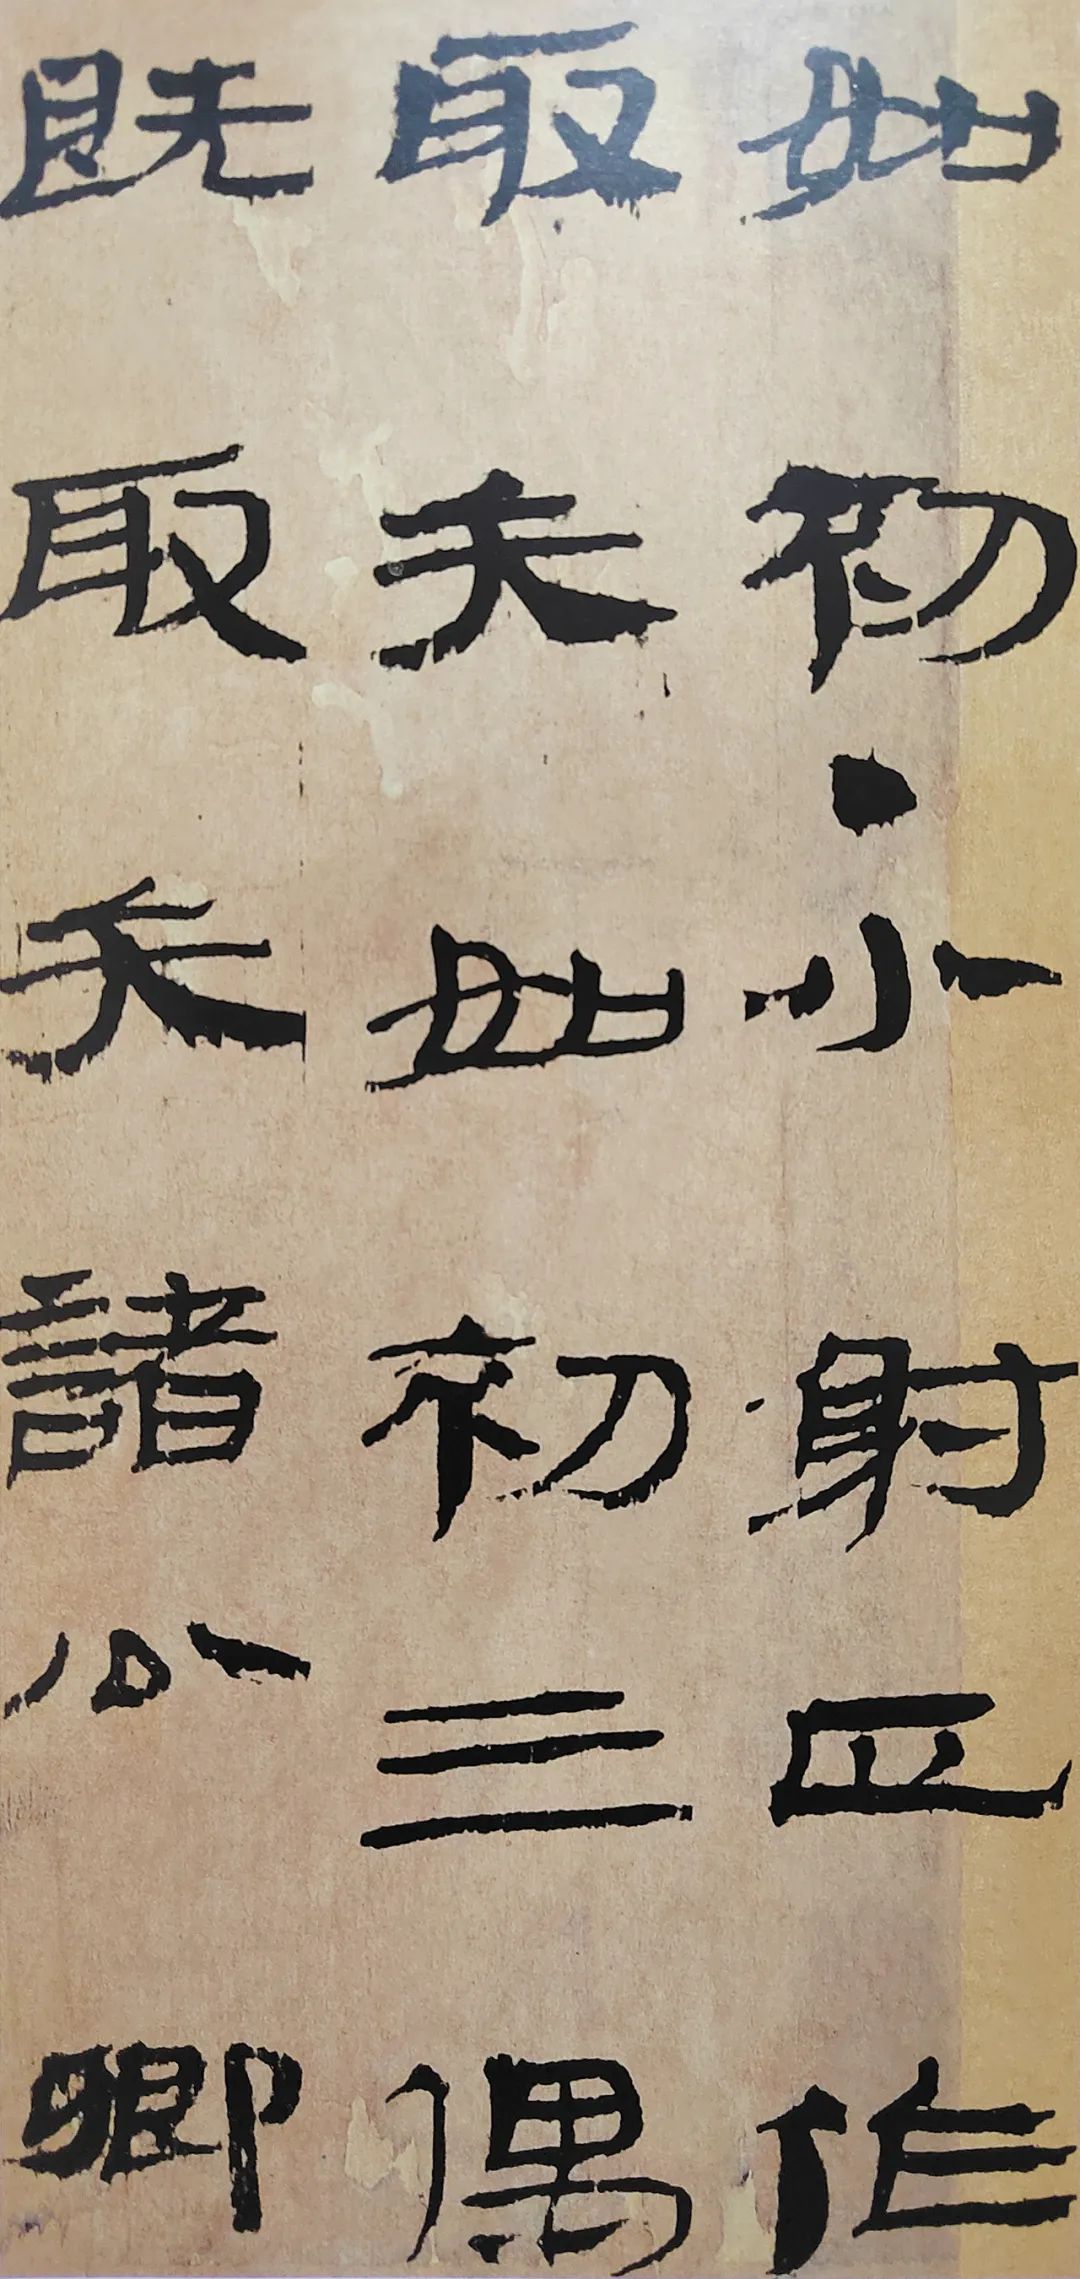 如初●小射正作
取矢如初三偶
既取矢諸公卿